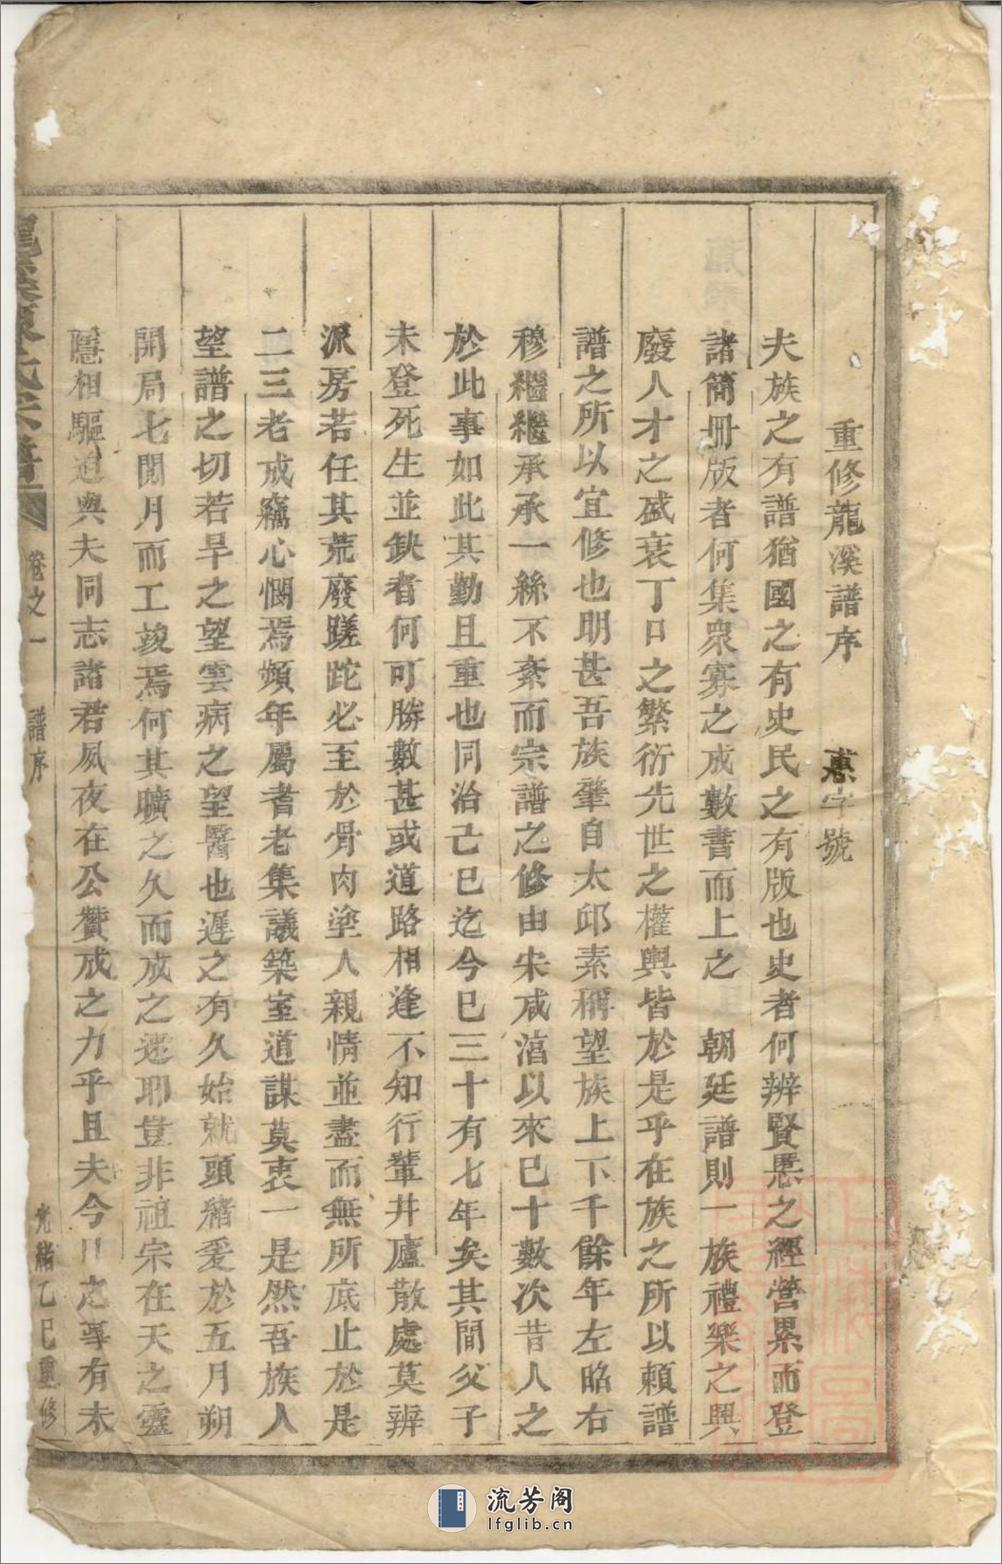 重修龍溪譜序 惠字號
夫族之有譜猶國之有史民之有版也史者何辨賢慝之經營累而登
諸簡冊版者何集衆寡之成數書而上之 朝廷譜則一族禮樂之興
廢人才之盛衰丁口之繁衍先世之權輿皆於是乎在族之所以賴譜
譜之所以宜修也明甚吾族肇自太邱素稱望族上下千餘年左昭右
穆繼繼承承一絲不紊而宗譜之修由宋咸淳以來已十數次昔人之
於此事如此其勤且重也同治己巳迄今已三十有七年矣其間父子
未登死生並缺者何可勝數甚或道路相逢不知行輩井廬散處莫辨
派房若任其荒廢蹉跎必至於骨肉塗人親情並盡而無所底止於是
二三老成竊心憫焉頻年屬耆老集議築室道謀莫衷一是然吾族人
望譜之切若旱之望雲病之望醫也遲之有久始就頭緒爰於五月朔
開局七閱月而工竣焉何其曠之久而成之速耶豈非祖宗在天之靈
隱相驅迫與夫同志諸君夙夜在公贊成之力乎且夫今日之舉有未
龍溪陳氏宗譜 卷之一 譜序 光緒乙巳重修
流芳阁
lfglib.cn